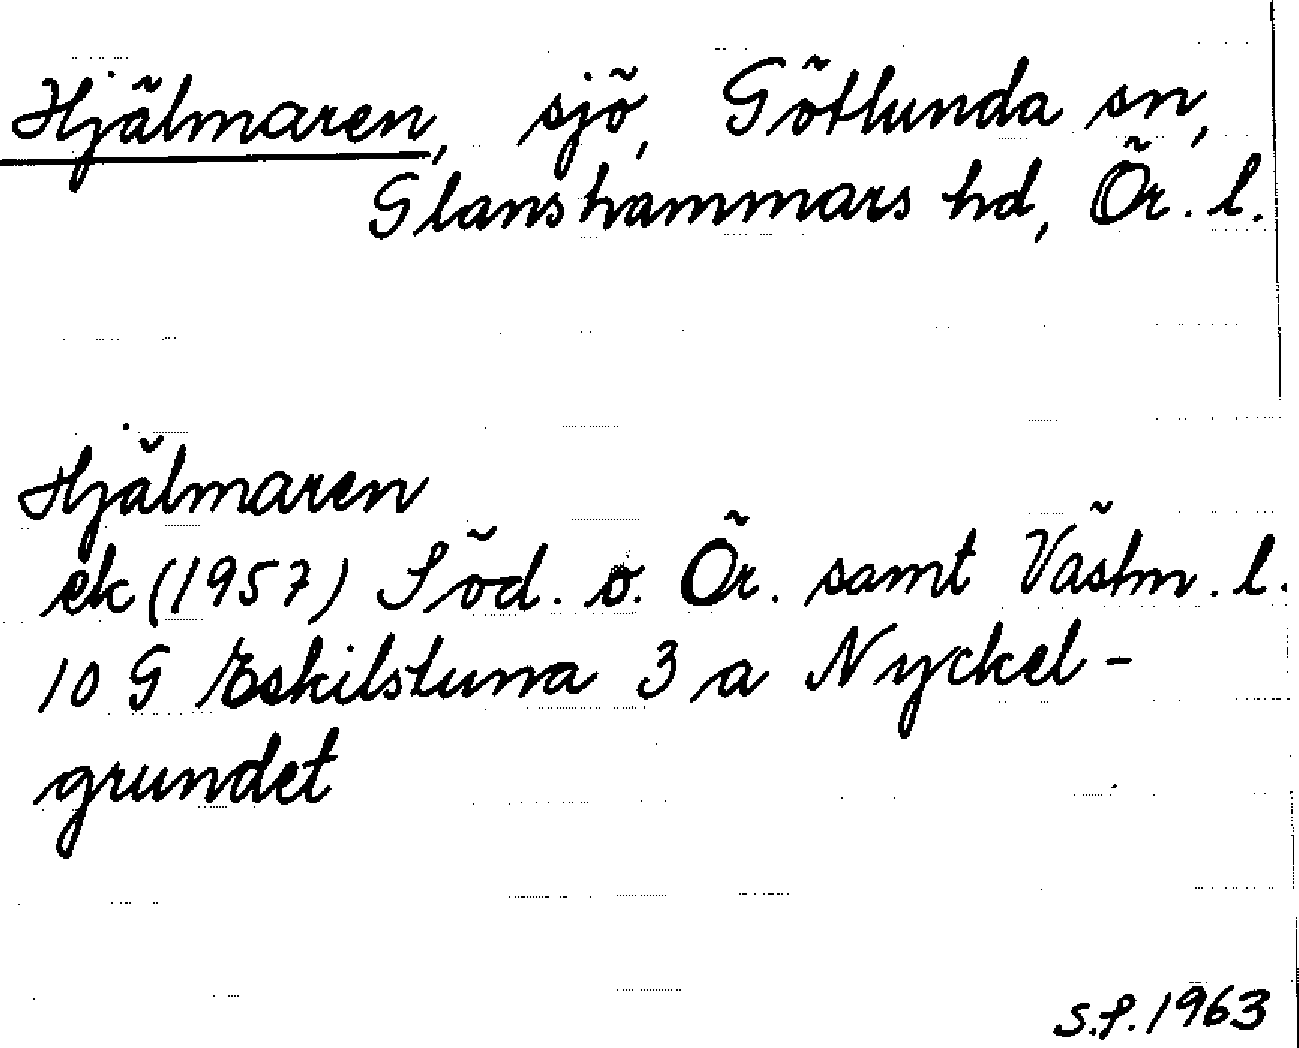 Hjälmaren, sjö, Götlunda sn,
Glanshammars hd, Ör. l.
Hjälmaren
ek (1957) Söd. o. Ör. samt Västm. l.
10 G Eskilstuna 3 a Nyckel-
grundet
S.P. 1963